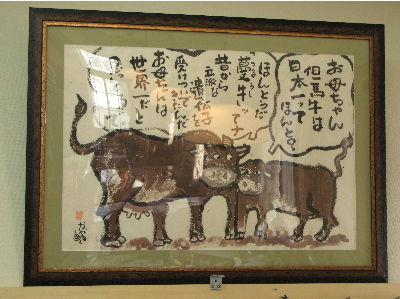 お母ちゃん
但馬牛は
日本一って
ほんと?
ほんとうだ
蔓牛ってネ
昔から
立派な
遺伝子を
受けついで
きたんだ
お母ちゃんは
世界一だと